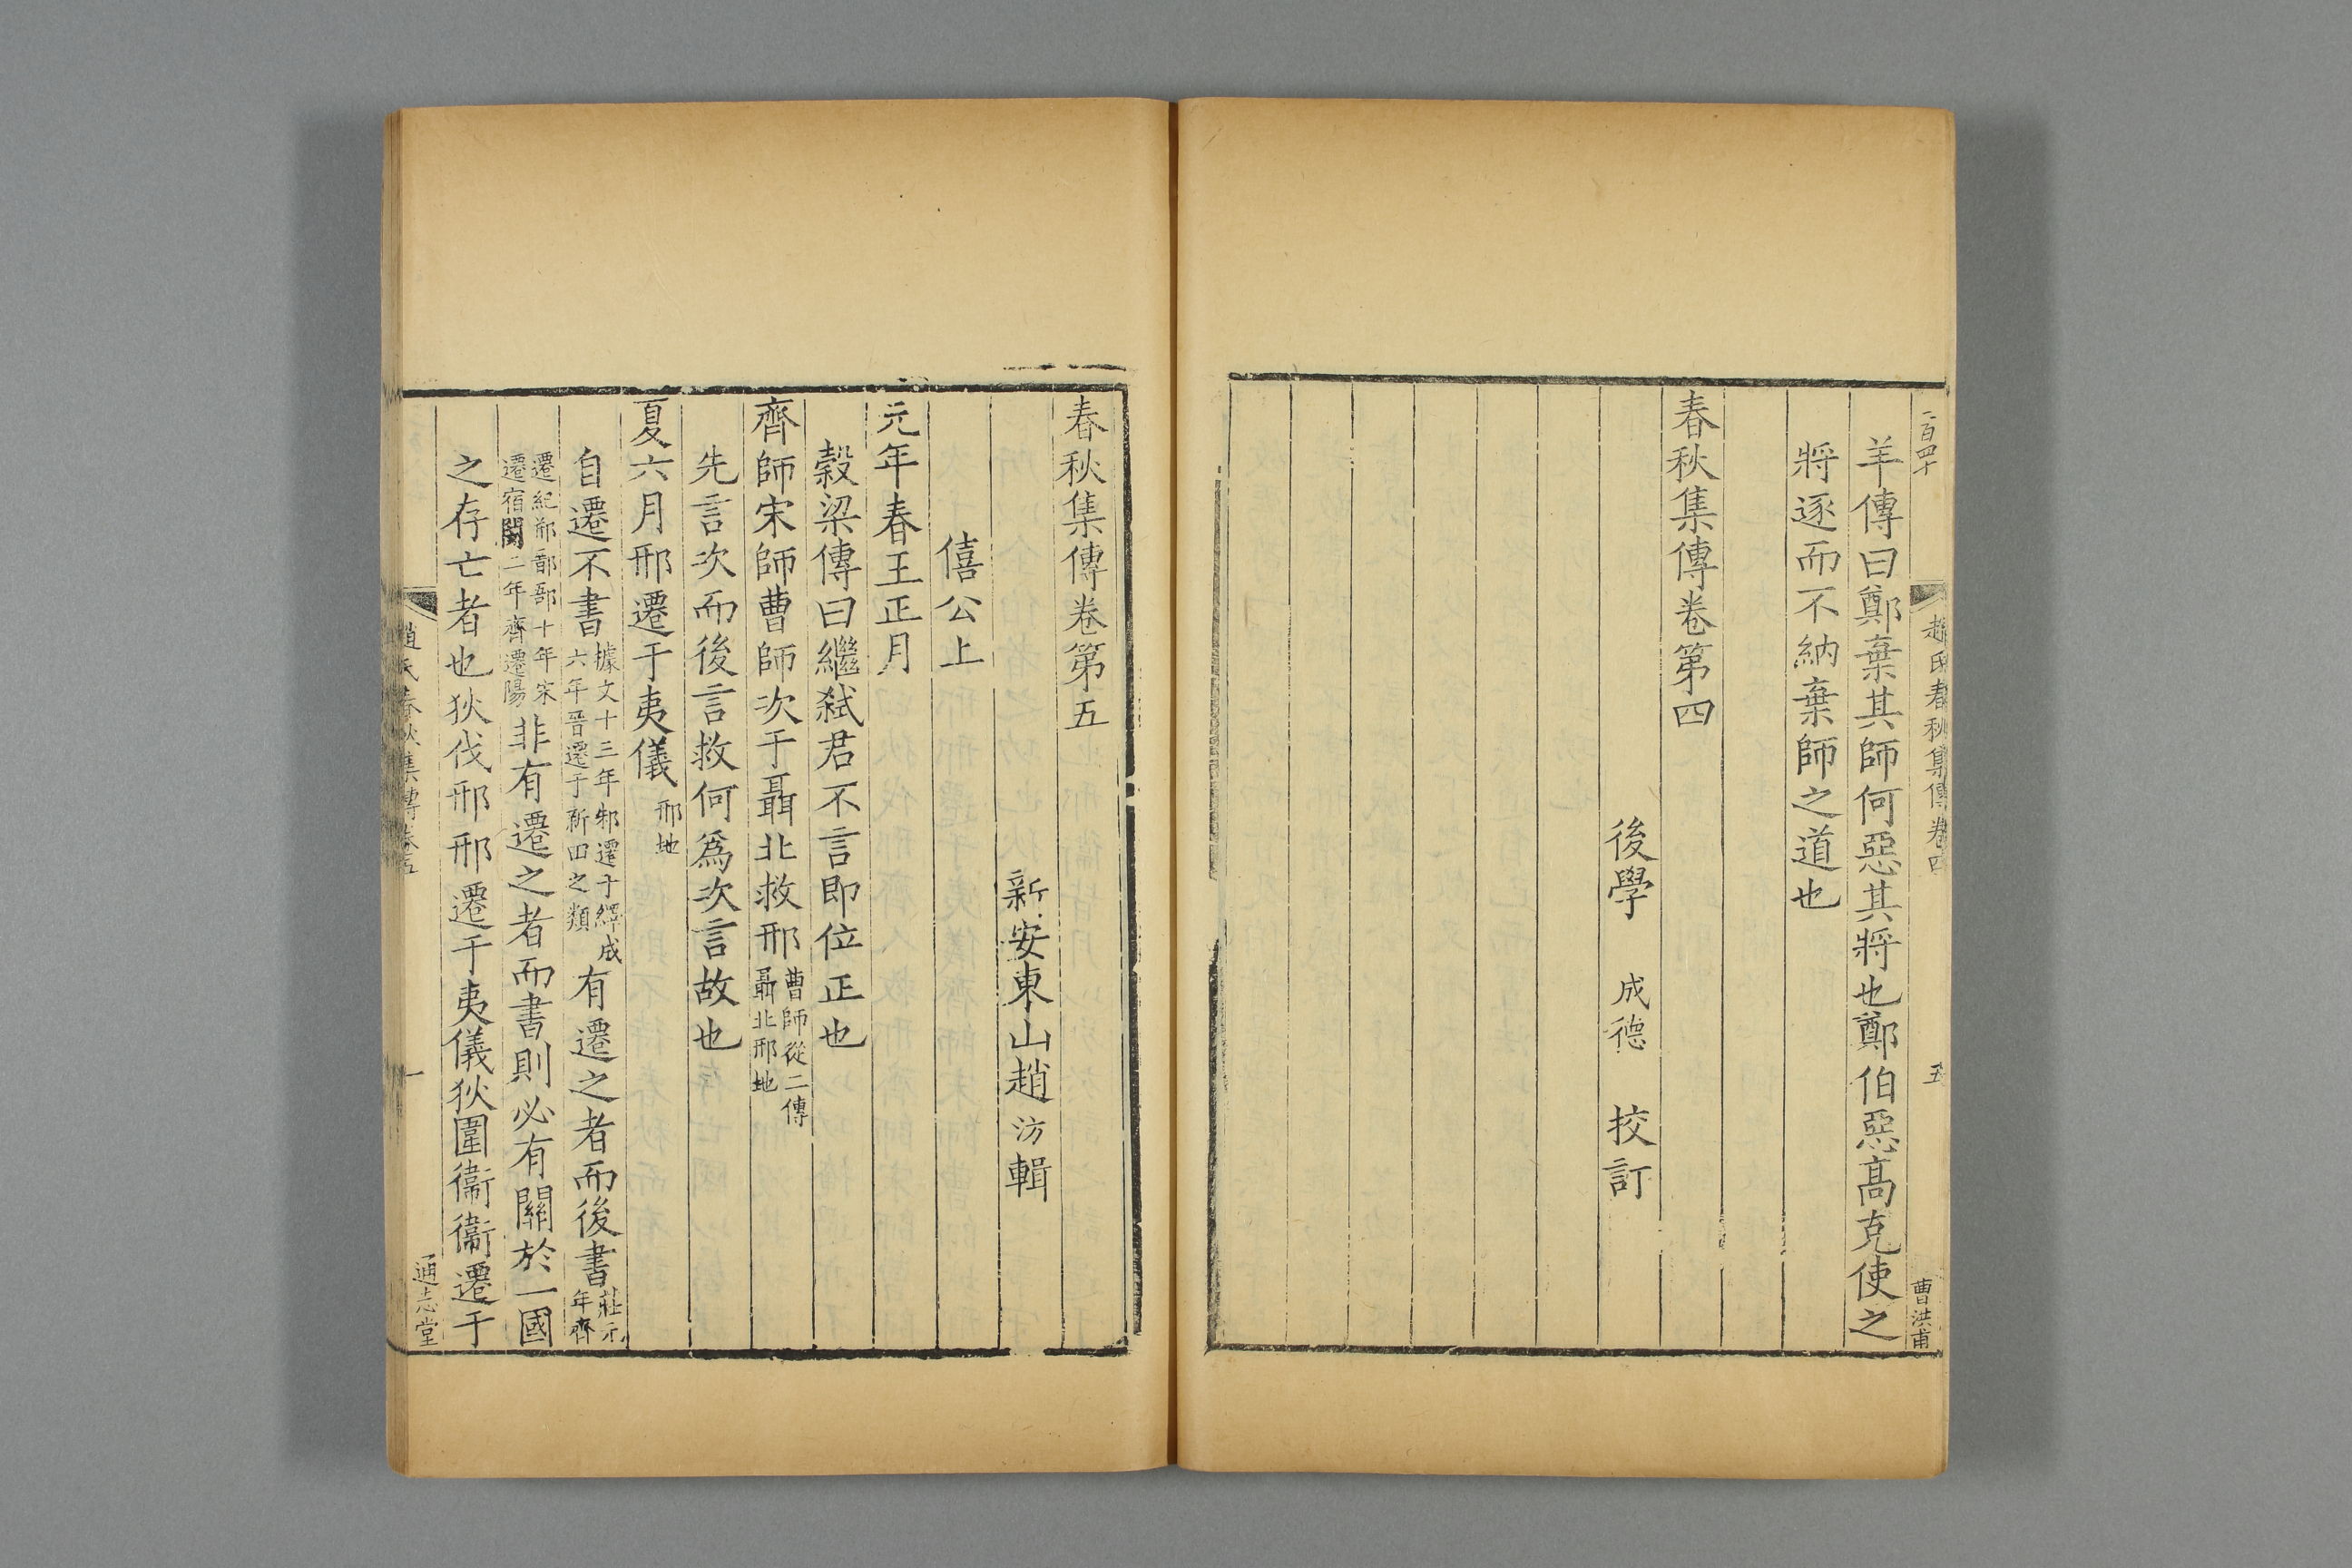 二百四十
趙氏春秋集傳卷四
五
曹洪甫
羊傳曰鄭棄其師何惡其將也鄭伯惡髙克使之
將逐而不納棄師之道也
春秋集傳卷第四
後學 成德 挍訂
春秋集傳卷第五
新安東山趙汸輯
僖公上
元年春王正月
穀梁傳曰繼弑君不言即位正也
齊師宋師曹師次于聶北救邢曹師從二傳聶北邢地
先言次而後言救何爲次言故也
夏六月邢遷于夷儀邢地
自遷不書據文十三年邾遷于繹成六年晉遷于新田之類有遷之者而後書莊元年齊
遷紀郱鄑郚十年宋遷宿閔二年齊遷陽非有遷之者而書則必有關於一國
之存亡者也狄伐邢邢遷于夷儀狄圍衞衞遷于
趙氏春秋集傳卷五
一
通志堂